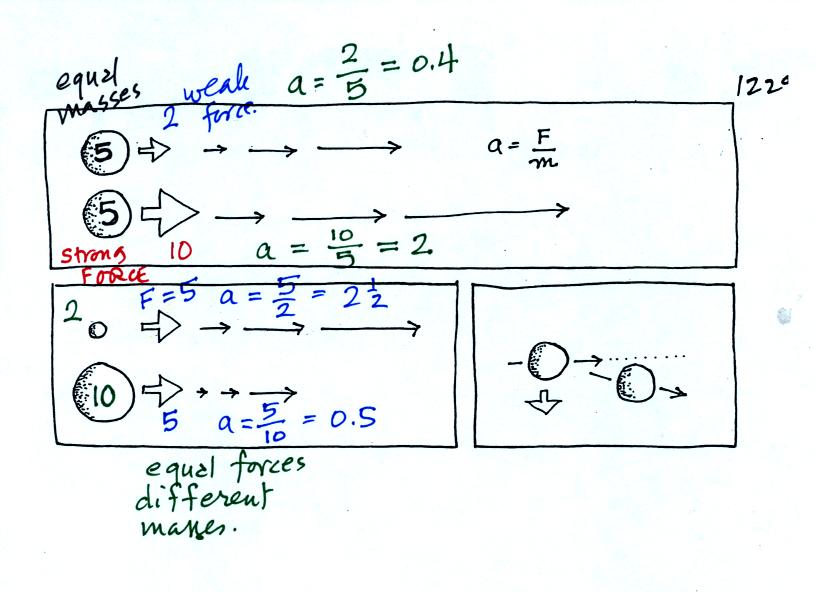 equal
masses
2 weak
force.
a = 2/5 = 0.4
122c
5
a = F/m
5
strong
FORCE
10
a = 10/5 = 2
2
F=5 a = 5/2 = 2 1/2
10
5 a = 5/10 = 0.5
equal forces
different
masses.